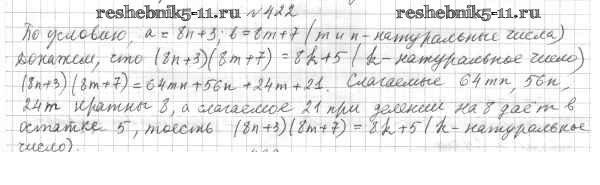 reshebnik5-11.ru №422 reshebnik5-11.ru
По условию, a = 8n+3; b = 8m+7 (m и n - натуральные числа)
Докажем, что (8n+3)(8m+7) = 8k+5 (k - натуральное число)
(8n+3)(8m+7) = 64mn+56n+24m+21. Слагаемые 64mn, 56n,
24m кратны 8, а слагаемое 21 при делении на 8 даёт в
остатке 5, тоесть (8n+3)(8m+7) = 8k+5 (k - натуральное
число).